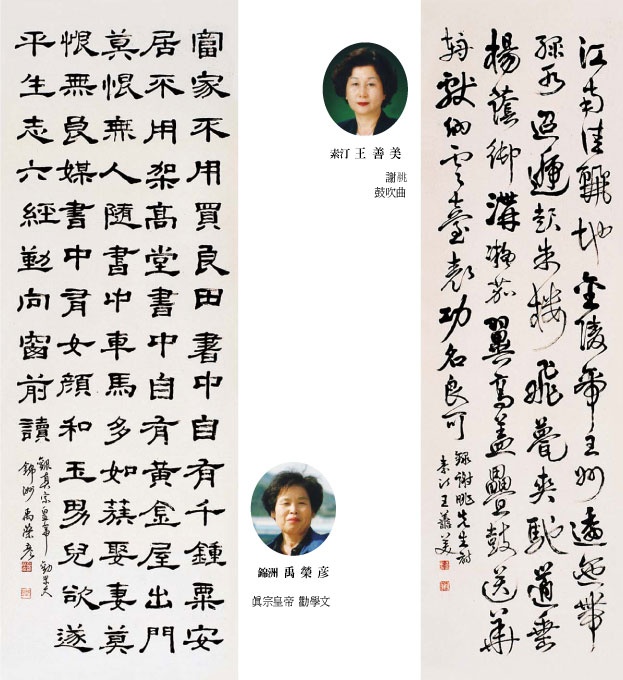 江南佳麗地金陵帝王州逶迤帶
綠水迢遞起朱樓飛甍夾馳道垂
楊蔭御溝凝笳翼高蓋疊鼓送華
輈獻納雲臺表功名良可
錄謝朓先生詩
素汀王善美
素汀 王善美
謝朓
鼓吹曲
富家不用買良田書中自有千鍾粟安
居不用架高堂書中自有黃金屋出門
莫恨無人隨書中車馬多如蔟娶妻莫
恨無良媒書中有女顔和玉男兒欲遂
平生志六經勤向窗前讀
真宗皇帝勸學文
錦洲禹榮彦
錦洲 禹榮彦
眞宗皇帝 勸學文